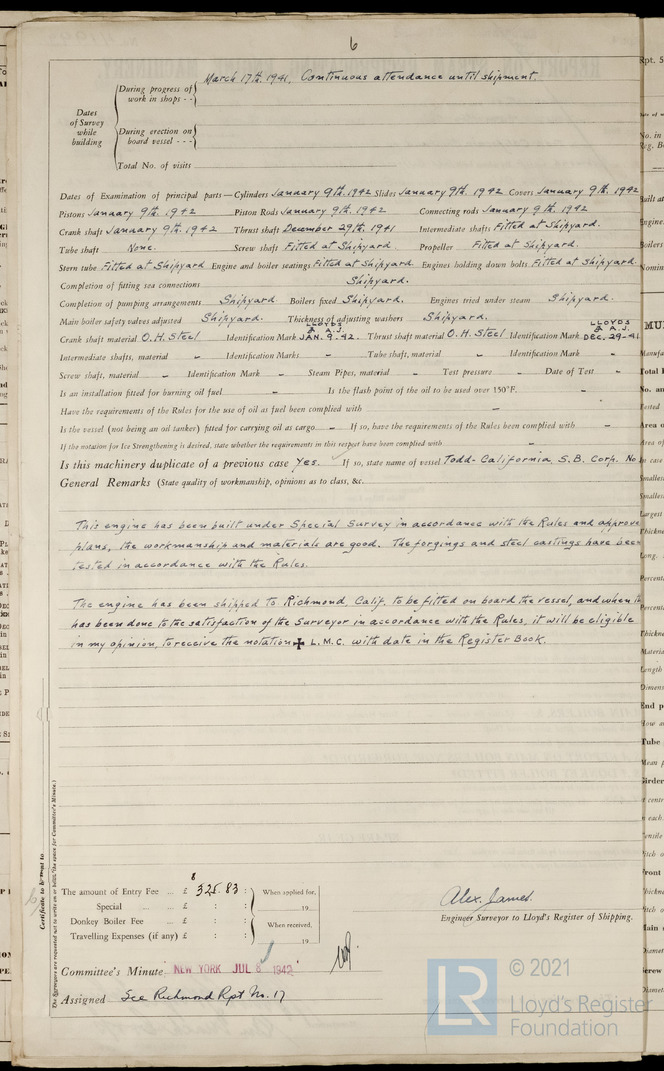 6
March 17th. 1941. Continuous attendance until shipment.
During progress of
work in shops - -
Dates
of Survey
while
building
During erection on
board vessel - - -
Total No. of visits
Dates of Examination of principal parts—Cylinders January 9th. 1942 Slides January 9th. 1942 Covers January 9th. 1942
Pistons January 9th. 1942 Piston Rods January 9th. 1942 Connecting rods January 9th. 1942
Crank shaft January 9th. 1942 Thrust shaft December 29th. 1941 Intermediate shafts Fitted at Shipyard.
Tube shaft None. Screw shaft Fitted at Shipyard Propeller Fitted at Shipyard.
Stern tube Fitted at Shipyard Engine and boiler seatings Fitted at Shipyard Engines holding down bolts Fitted at Shipyard.
Completion of fitting sea connections Shipyard.
Completion of pumping arrangements Shipyard Boilers fixed Shipyard. Engines tried under steam Shipyard.
Main boiler safety valves adjusted Shipyard. Thickness of adjusting washers Shipyard.
Crank shaft material O.H. Steel Identification Mark LLOYDS & A.J. JAN. 9-42. Thrust shaft material O.H. Steel Identification Mark LLOYDS & A.J. DEC. 29-41
Intermediate shafts, material - Identification Marks - Tube shaft, material - Identification Mark -
Screw shaft, material - Identification Mark - Steam Pipes, material - Test pressure - Date of Test -
Is an installation fitted for burning oil fuel - Is the flash point of the oil to be used over 150°F. -
Have the requirements of the Rules for the use of oil as fuel been complied with -
Is the vessel (not being an oil tanker) fitted for carrying oil as cargo - If so, have the requirements of the Rules been complied with -
If the notation for Ice Strengthening is desired, state whether the requirements in this respect have been complied with -
Is this machinery duplicate of a previous case Yes. If so, state name of vessel Todd-California, S.B. Corp. No
General Remarks (State quality of workmanship, opinions as to class, &c.
This engine has been built under Special Survey in accordance with the Rules and approve
plans, the workmanship and materials are good. The forgings and steel castings have bee
tested in accordance with the Rules.
The engine has been shipped to Richmond, Calif. to be fitted on board the vessel, and when
has been done to the satisfaction of the Surveyor in accordance with the Rules, it will be eligible
in my opinion, to receive the notation ✠ L.M.C. with date in the Register Book.
Certificate to be sent to
(The Surveyors are requested not to write on or below the space for Committee's Minute.)
The amount of Entry Fee ... £ : : When applied for,
Special ... £ : : 19
Donkey Boiler Fee ... £ : : When received,
Travelling Expenses (if any) £ : : 19
Alex. James.
Engineer Surveyor to Lloyd's Register of Shipping.
Committee's Minute NEW YORK JUL 8 1942
Assigned See Richmond Rpt No. 17
© 2021
LR Lloyd's Register
Foundation